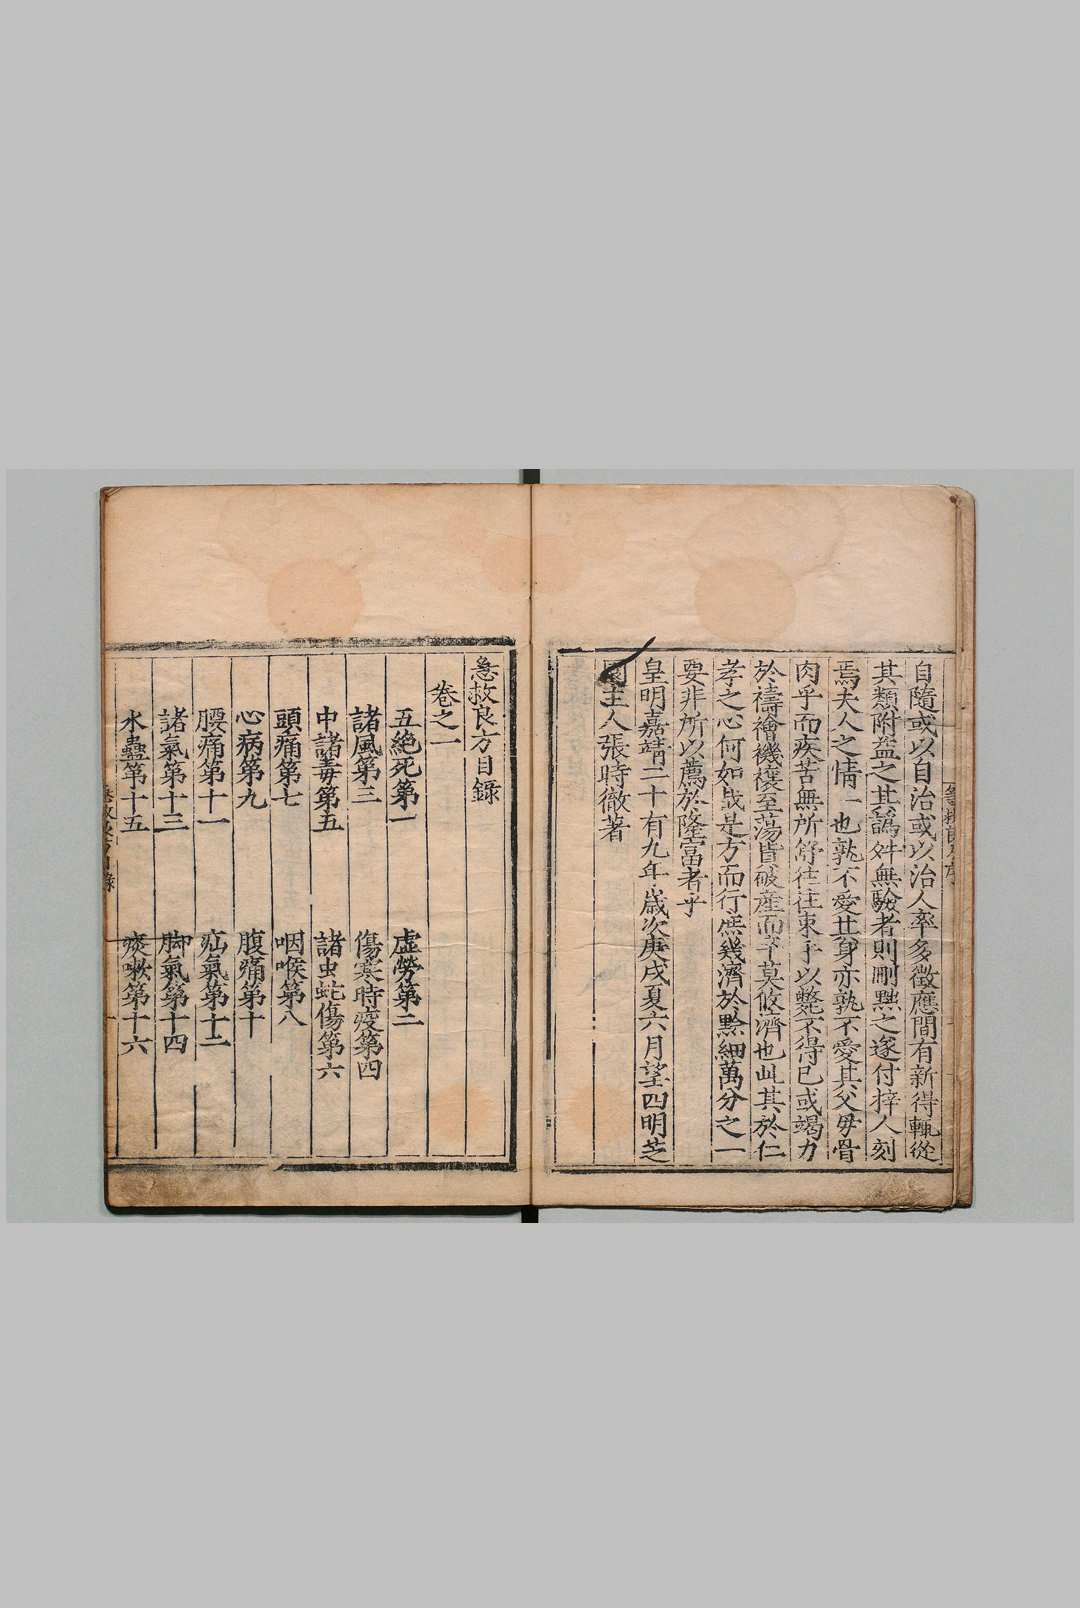 自隨或以自治或以治人率多徵應間有新得輒從
其類附益之其譌舛無驗者則刪黜之遂付梓人刻
焉夫人之情一也孰不愛其身亦孰不愛其父母骨
肉乎而疾苦無所舒往往束手以斃不得已或竭力
於禱禬禨禳至蕩貲破產而卒莫攸濟也此其於仁
孝之心何如哉是方而行庶幾濟於黔細萬分之一
要非所以薦於隆富者乎
皇明嘉靖二十有九年歲次庚戌夏六月望四明芝
園主人張時徹著
急救良方目錄
卷之一
五絕死第一 虛勞第二
諸風第三 傷寒時疫第四
中諸毒第五 諸虫蛇傷第六
頭痛第七 咽喉第八
心病第九 腹痛第十
腰痛第十一 疝氣第十二
諸氣第十三 脚氣第十四
水蠱第十五 痰嗽第十六